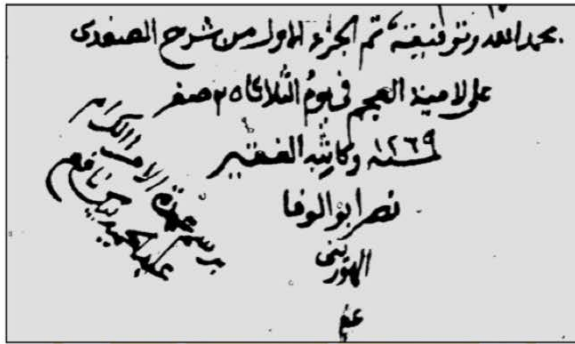 بحمد الله وتوفيقه تم الجزء الاول من شرح الصفدى
على لامية العجم فى يوم الثلاثا ٢٥ صفر
سنة ١٢٦٩ وكاتبه الفقير
نصر ابو الوفا
الهورينى
برسم عمدة الكرام
عبد الحميد بيك نافع